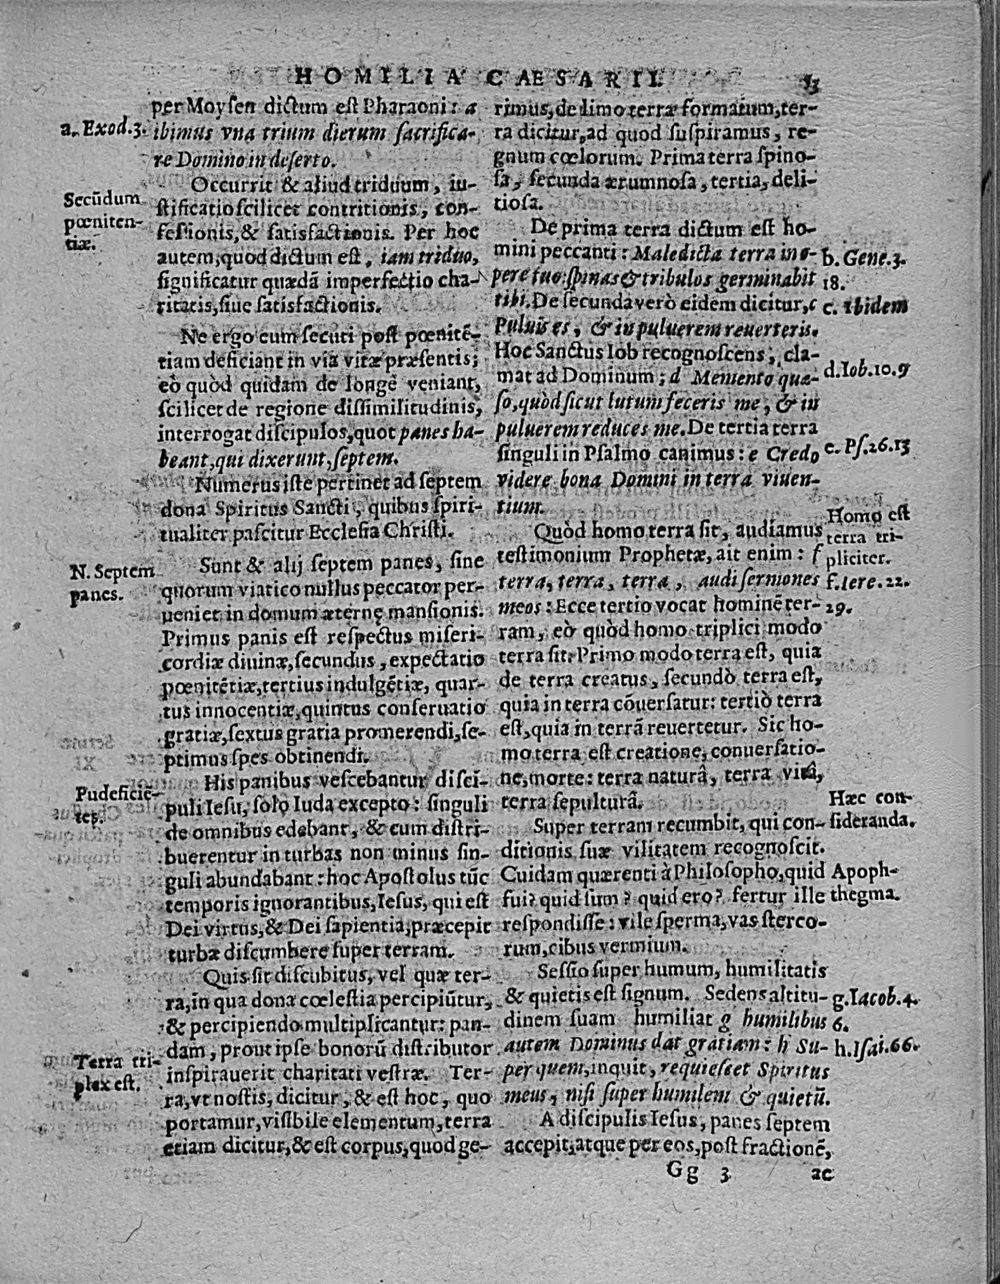 HOMILIA CAESARII.
per Moysen dictum est Pharaoni: a
a. Exod. 3.
ibimus vna trium dierum sacrifica-
re Domino in deserto.
Occurrit & aliud triduum, iu-
Secũdum
pœniten-
tiæ.
stificatio scilicet contritionis, con-
fessionis, & satisfactionis. Per hoc
autem, quod dictum est, iam triduo,
significatur quædã imperfectio cha-
ritatis, siue satisfactionis.
Ne ergo eum secuti post pœnitẽ-
tiam deficiant in via vitæ præsentis;
eò quòd quidam de longè veniant,
scilicet de regione dissimilitudinis,
interrogat discipulos, quot panes ha-
beant, qui dixerunt, septem.
Numerus iste pertinet ad septem
dona Spiritus Sancti, quibus spiri-
tualiter pascitur Ecclesia Christi.
Sunt & alij septem panes, sine
N. Septem
panes.
quorum viatico nullus peccator per-
ueniet in domum æternę mansionis.
Primus panis est respectus miseri-
cordiæ diuinæ, secundus, expectatio
pœnitẽtiæ, tertius indulgẽtiæ, quar-
tus innocentiæ, quintus conseruatio
gratiæ, sextus gratia promerendi, se-
ptimus spes obtinendi.
His panibus vescebantur disci-
Pudeficiẽ-
tes.
puli Iesu, solo Iuda excepto: singuli
de omnibus edebant, & cum distri-
buerentur in turbas non minus sin-
guli abundabant: hoc Apostolus tũc
temporis ignorantibus, Iesus, qui est
Dei virtus, & Dei sapientia, præcepit
turbæ discumbere super terram.
Quis sit discubitus, vel quæ ter-
ra, in qua dona cœlestia percipiũtur,
& percipiendo multiplicantur: pan-
dam, prout ipse bonorũ distributor
Terra tri-
plex est.
inspirauerit charitati vestræ. Ter-
ra, vt nostis, dicitur, & est hoc, quo
portamur, visibile elementum, terra
etiam dicitur, & est corpus, quod ge-
rimus, de limo terræ formatum, ter-
ra dicitur, ad quod suspiramus, re-
gnum cœlorum. Prima terra spino-
sa, secunda ærumnosa, tertia, deli-
tiosa.
De prima terra dictum est ho-
mini peccanti: Maledicta terra in o-
b. Gene. 3.
18.
pere tuo: spinas & tribulos germinabit
tibi. De secunda verò eidem dicitur, c
c. ibidem
Puluis es, & in puluerem reuerteris.
Hoc Sanctus Iob recognoscens, cla-
mat ad Dominum; d Memento quæ-
d. Iob. 10. 9
so, quòd sicut lutum feceris me, & in
puluerem reduces me. De tertia terra
singuli in Psalmo canimus: e Credo
e. Ps. 26. 13
videre bona Domini in terra viuen-
tium.
Quòd homo terra sit, audiamus
Homo est
terra tri-
pliciter.
testimonium Prophetæ, ait enim: f
terra, terra, terra, audi sermones
f. Iere. 22.
29.
meos: Ecce tertio vocat hominẽ ter-
ram, eò quòd homo triplici modo
terra sit. Primo modo terra est, quia
de terra creatus, secundò terra est,
quia in terra cõuersatur: tertiò terra
est, quia in terrã reuertetur. Sic ho-
mo terra est creatione, conuersatio-
ne, morte: terra naturâ, terra vitâ,
terra sepulturâ.
Hæc con-
sideranda.
Super terram recumbit, qui con-
ditionis suæ vilitatem recognoscit.
Cuidam quærenti à Philosopho, quid
Apoph-
thegma.
fui? quid sum? quid ero? fertur ille
respondisse: vile sperma, vas sterco-
rum, cibus vermium.
Sessio super humum, humilitatis
& quietis est signum. Sedens altitu-
g. Iacob. 4.
6.
dinem suam humiliat g humilibus
autem Dominus dat gratiam: h Su-
h. Isai. 66.
per quem, inquit, requiescet Spiritus
meus, nisi super humilem & quietũ.
A discipulis Iesus, panes septem
accepit, atque per eos, post fractionẽ,
Gg 3 ac